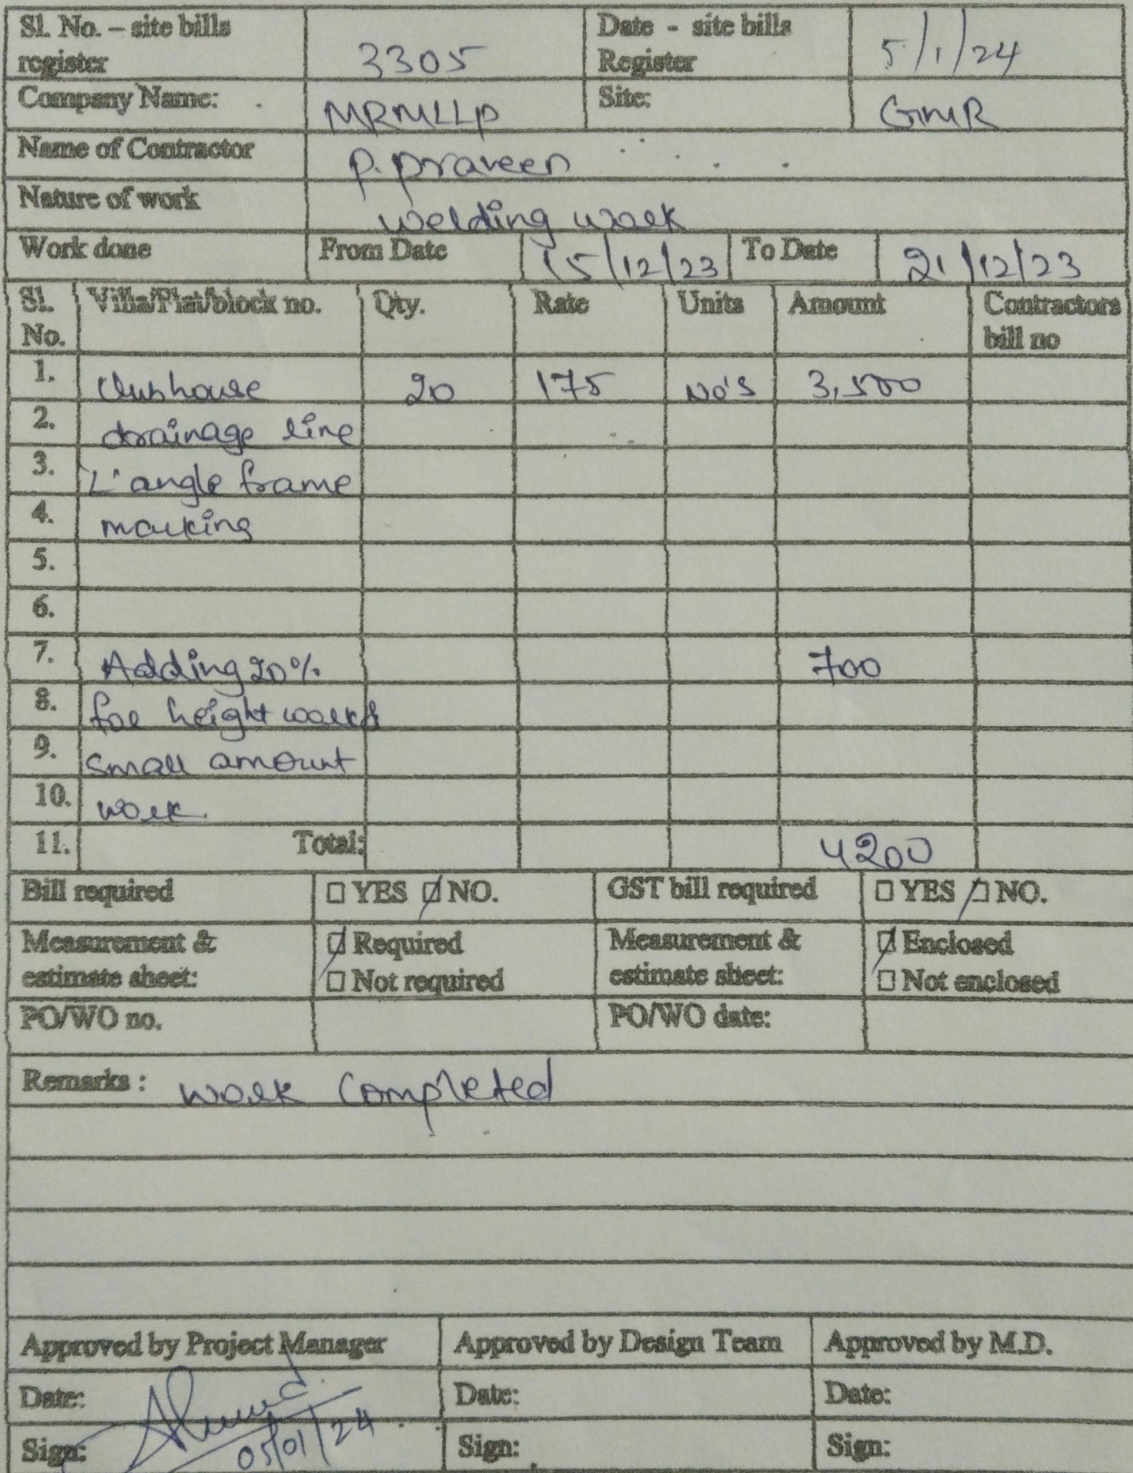 Sl. No. – site bills register 3305 Date - site bills Register 5/1/24
Company Name: MRMLLP Site: GMR
Name of Contractor P. praveen
Nature of work welding work
Work done From Date 15/12/23 To Date 21/12/23
Sl. No. Villa/Plat/block no. Qty. Rate Units Amount Contractors bill no
1. Clubhouse 20 175 No's 3,500
2. drainage line
3. 'L' angle frame
4. making
5.
6.
7. Adding 20% 700
8. for height work &
9. small amount
10. work.
11. Total: 4200
Bill required ☐ YES ☑ NO. GST bill required ☐ YES ☑ NO.
Measurement & estimate sheet: ☑ Required ☐ Not required Measurement & estimate sheet: ☑ Enclosed ☐ Not enclosed
PO/WO no. PO/WO date:
Remarks : work completed
Approved by Project Manager Approved by Design Team Approved by M.D.
Date: Date: Date:
Sign: 05/01/24 Sign: Sign: